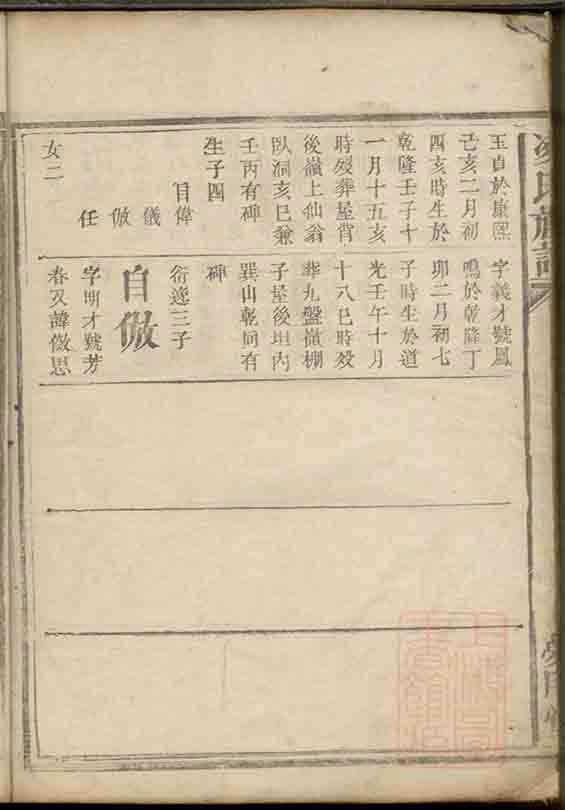 玉貞於康熙
己亥二月初
四亥時生於
乾隆壬子十
一月十五亥
時歿葬屋背
後嶺上仙翁
臥洞亥巳兼
壬丙有碑
生子四
自偉
儀
倣
任
女二
字義才號鳳
鳴於乾隆丁
卯二月初七
子時生於道
光壬午十月
十八巳時歿
葬九盤嶺棚
子屋後坦內
巽山乾向有
碑
衍遞三子
自倣
字明才號芳
春又諱傲思
氏族譜